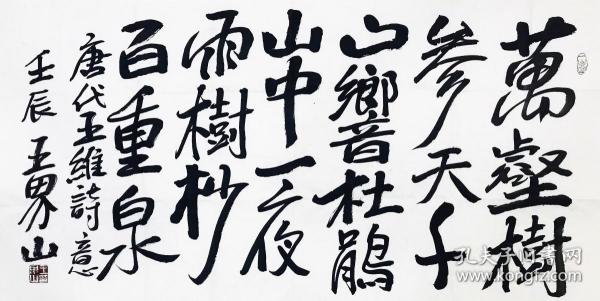 萬壑樹
参天千
山響杜鵑
山中一夜
雨樹杪
百重泉
唐代王維詩意
壬辰 王界山
孔夫子旧书网
www.kongfz.com